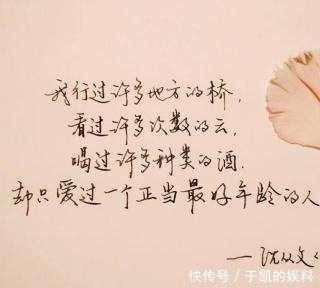 我行过许多地方的桥,
看过许多次数的云,
喝过许多种类的酒.
却只爱过一个正当最好年龄的人
——沈从文《
快传号 / 于凯的娱料